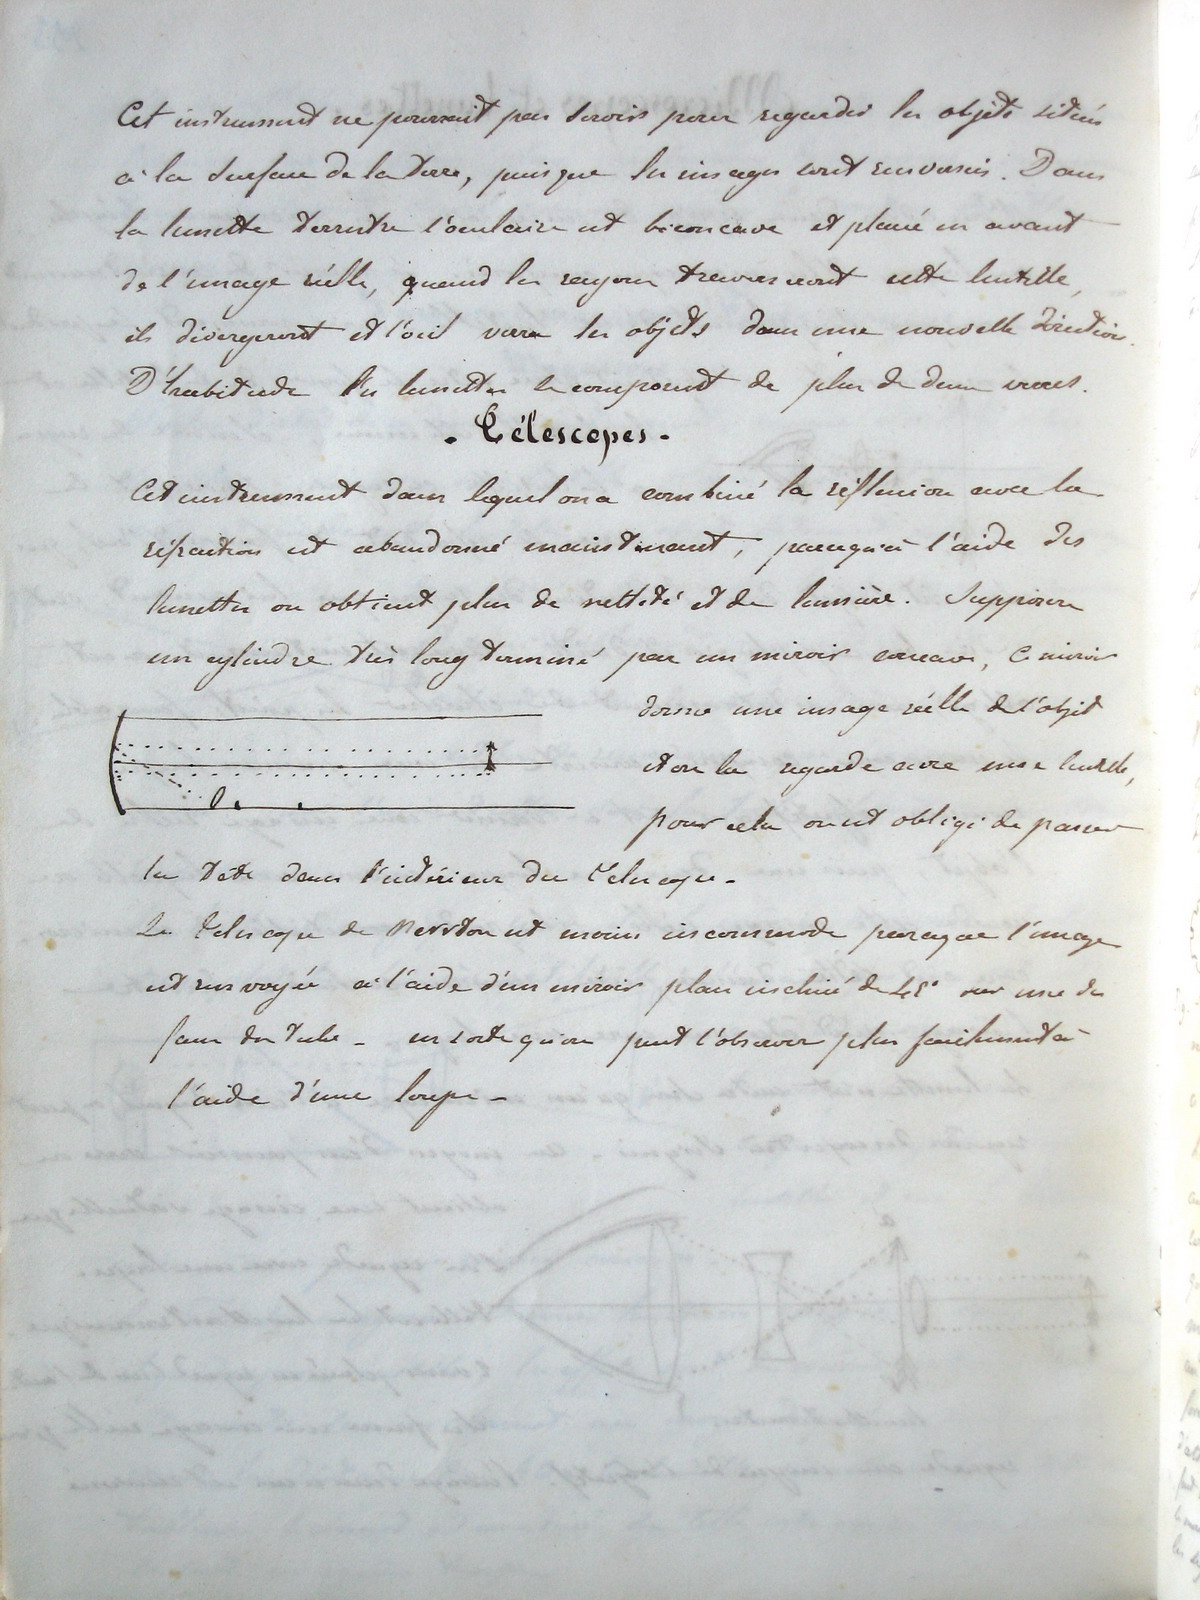 Cet instrument ne pourrait pas servir pour regarder les objets situés
à la surface de la terre, puisque les images sont renversées. Dans
la lunette terrestre l'oculaire est biconcave et placé en avant
de l'image réelle, quand les rayons traverseront cette lentille,
ils divergeront et l'œil verra les objets dans une nouvelle direction.
D'habitude les lunettes se composent de plus de deux verres.
- Télescopes -
Cet instrument dans lequel on a combiné la réflexion avec la
réfraction est abandonné maintenant, parcequ'à l'aide des
lunettes on obtient plus de netteté et de lumière. Supposons
un cylindre très long terminé par un miroir concave, ce miroir
donne une image réelle de l'objet
et on la regarde avec une lentille,
pour cela on est obligé de passer
la tête dans l'intérieur du Télescope -
Le Télescope de Newton est moins incommode parceque l'image
est renvoyée à l'aide d'un miroir plan incliné de 45° sur une des
faces du tube - en sorte qu'on peut l'observer plus facilement à
l'aide d'une loupe -